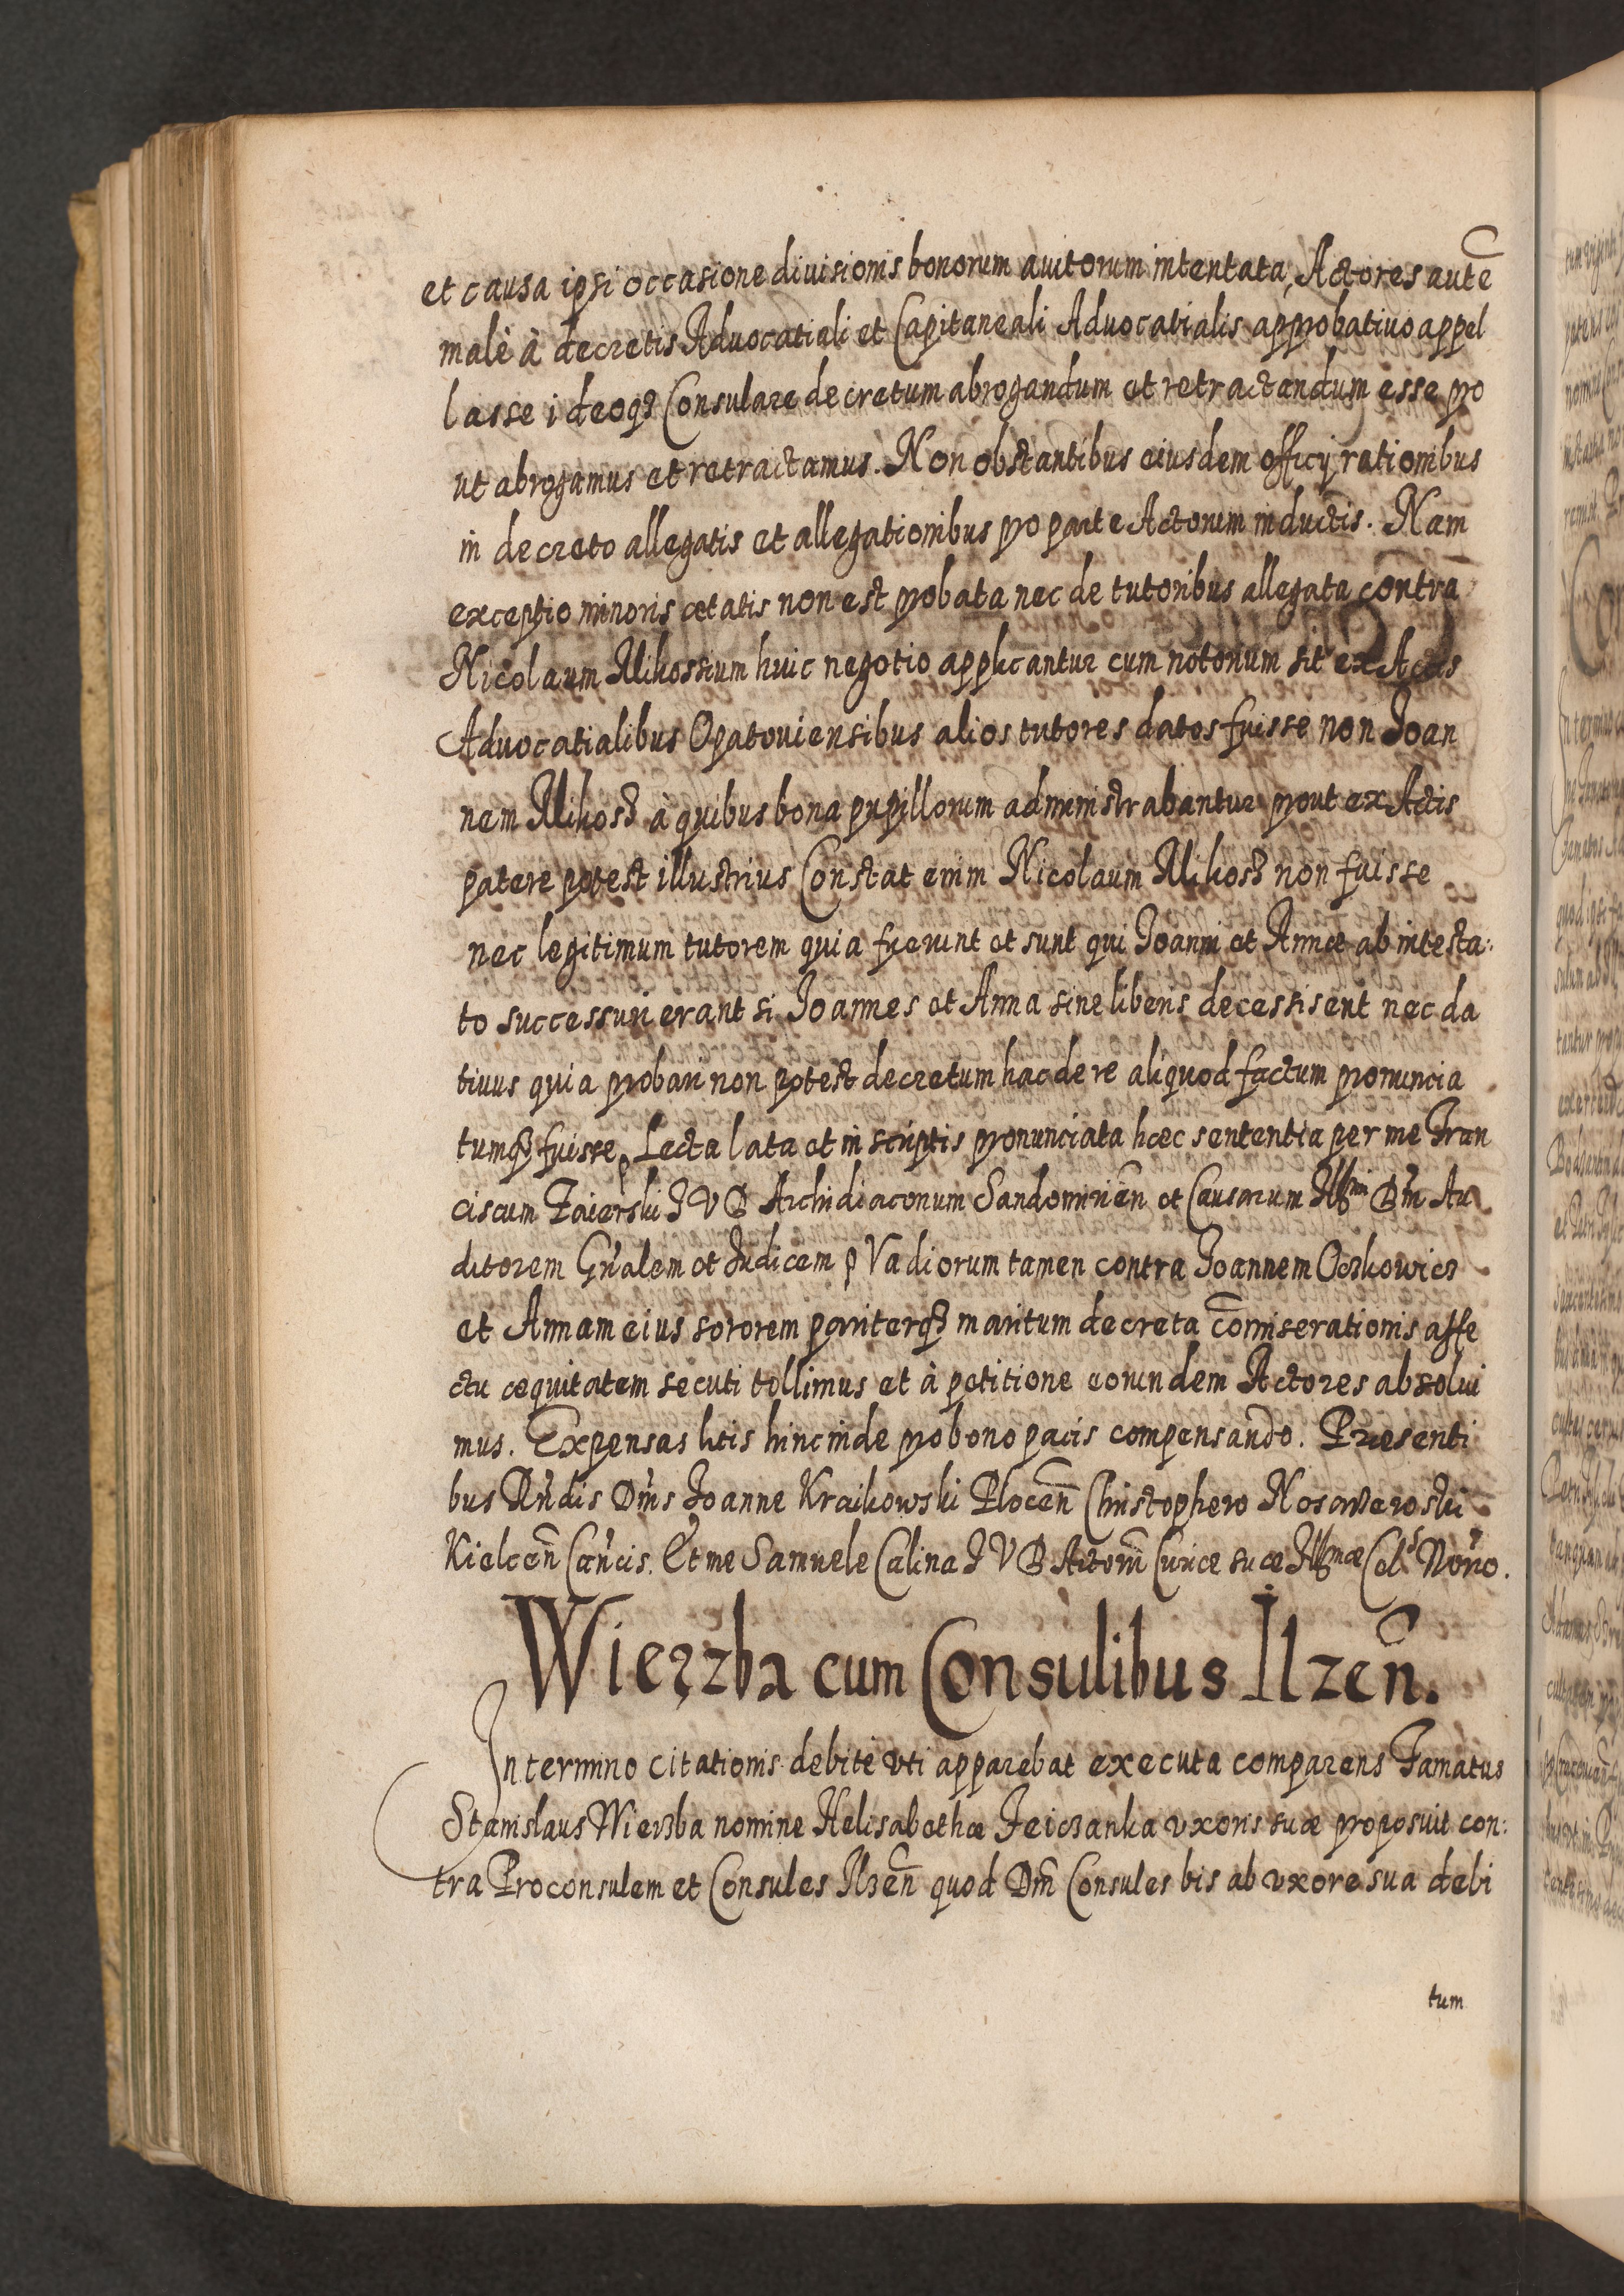 et causa ipsi occasione divisionis bonorum avitorum intentata, Actores autē
malè à decretis Advocatiali et Capitaneali Advocatialis approbativo appel
lasse ideoqз Consulare decretum abrogandum et retractandum esse pro
ut abrogamus et retractamus. Non obstantibus eiusdem officij rationibus
in decreto allegatis et allegationibus pro parte Actorum inductis. Nam
exceptio minoris ætatis non est probata nec de tutoribus allegata contra
Nicolaum Mikossium huic negotio applicantur cum notorium sit ex Actis
Advocatialibus Opatoviensibus alios tutores datos fuisse non Joan
nem Mikosз à quibus bona pupillorum administrabantur prout ex Actis
patere potest illustrius Constat enim Nicolaum Mikosз non fuisse
nec legitimum tutorem quia fuerunt et sunt qui Joanni et Annæ ab intesta:
to successuri erant si Joannes et Anna sine liberis decessisent nec da
tivus quia probari non potest decretum hac de re aliquod factum pronuncia
tumqз fuisse. Lecta lata et in scriptis pronunciata hæc sententia per me Fran
ciscum Zaierski J V D Archidiaconum Sandomirien̄ et Causarum Illmi Dn̄i Au
ditorem Gn̄alem et Judicem Vadiorum tamen contra Joannem Oczkowicz
et Annam eius sororem pariterqз maritum decreta com̄iserationis affe
ctu æquitatem secuti tollimus et à petitione eorundem Actores absolvi
mus. Expensas litis hinc inde pro bono pacis compensando. Præsenti
bus Rn̄dis Dn̄is Joanne Kraikowski Plocen̄ Christophero
Kielcen̄ Can̄cis. Et me Samuele Calina J V D Actorum̄ Curiæ suæ Illmæ Cels Nor̄io.
Wierzba cum Consulibus Ilzen̄.
In termino citationis debitè uti apparebat executa comparens Famatus
Stanislaus Wierзba nomine Helisabethæ Jeiczanka uxoris suæ proposuit con:
tra Proconsulem et Consules Ilзen̄ quod Dn̄i Consules bis ab uxore sua debi
tum